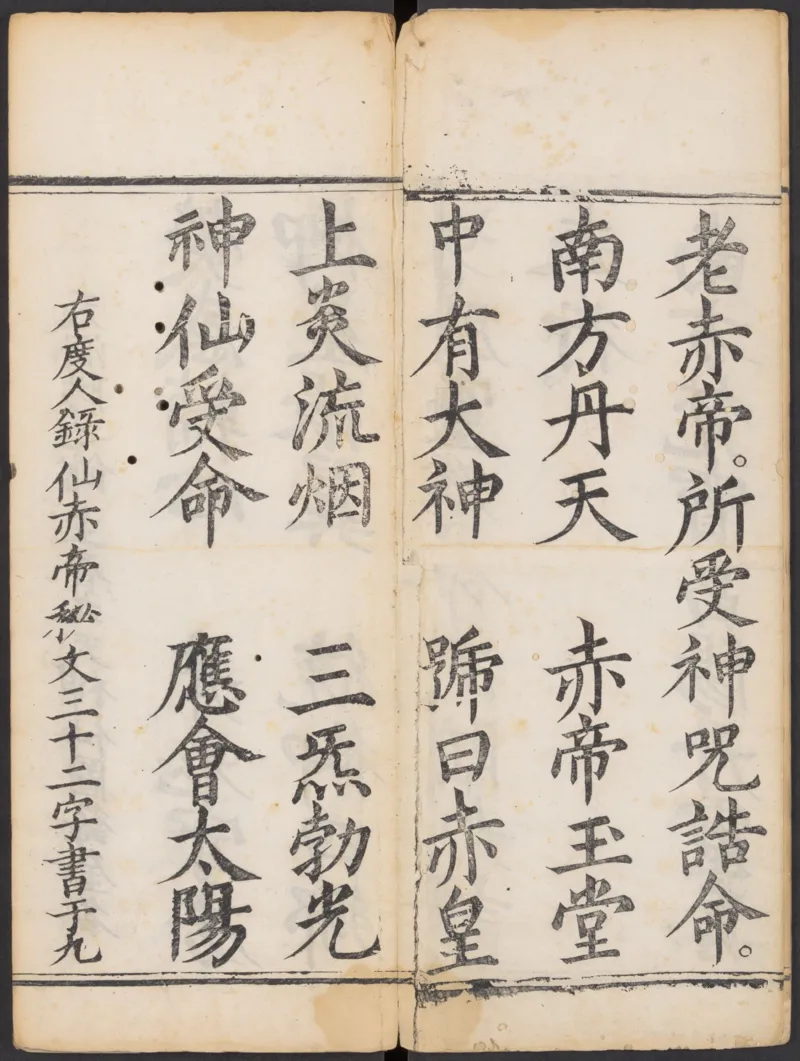 老赤帝。所受神咒誥命。
南方丹天　赤帝玉堂
中有大神　號曰赤皇
上炎流烟　三炁勃光
神仙受命　應會太陽
右度人錄仙赤帝秘文三十二字書于九